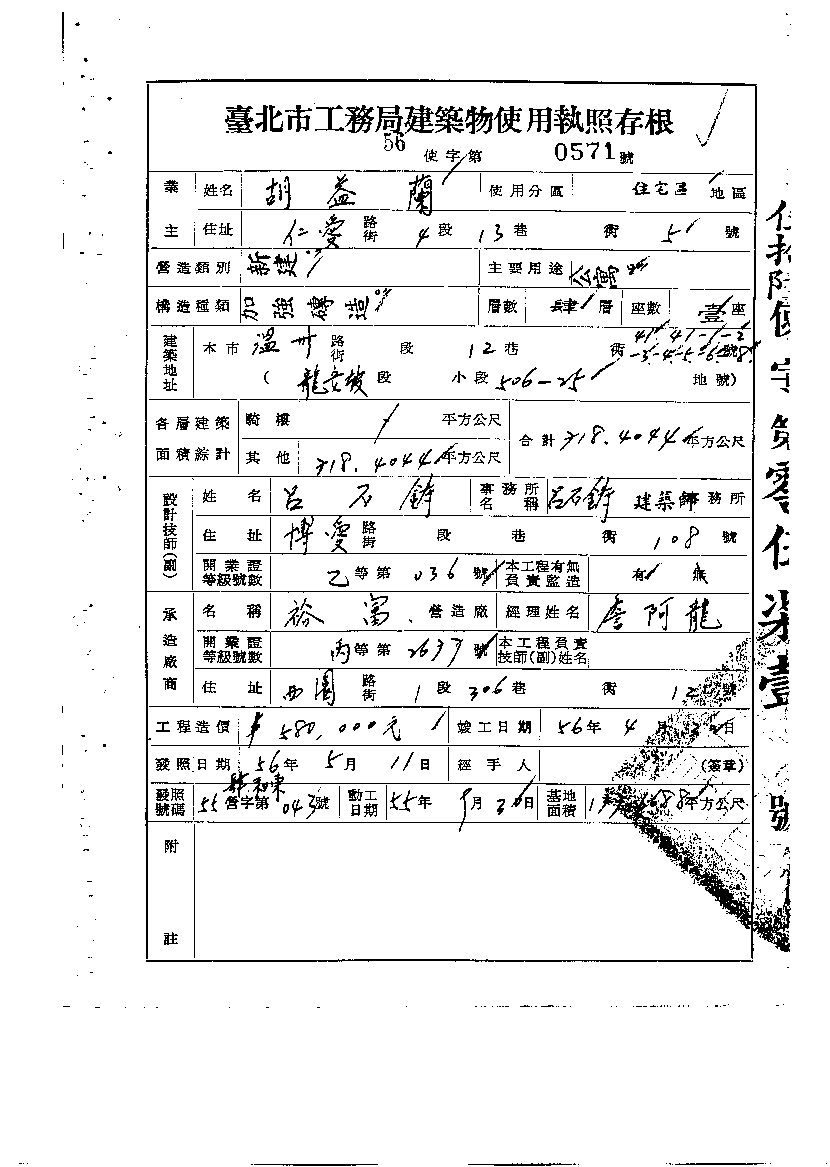 臺北市工務局建築物使用執照存根
56 使字第 0571 號
業主 姓名 胡益蘭 使用分區 住宅區 地區
住址 仁愛 路街 4 段 13 巷 衖 51 號
營造類別 新建 主要用途
構造種類 加強磚造 層數 肆 層 座數 壹 座
建築地址 本市 溫州 路街 段 12 巷 衖 號
( 龍安坡 段 小段 506-25 地號)
各層建築面積綜計 騎樓 平方公尺 合計 318.4044 平方公尺
其他 318.4044 平方公尺
設計技師(副) 姓名 呂石錡 事務所名稱 呂石錡 建築師事務所
住址 博愛 路街 段 巷 衖 108 號
開業證等級號數 乙 等第 036 號 本工程有無負責監造 有 無
承造廠商 名稱 裕富 營造廠 經理姓名 詹阿龍
開業證等級號數 丙 等第 2637 號 本工程負責技師(副)姓名
住址 西園 路街 1 段 306 巷 衖 12 號
工程造價 580,000元 竣工日期 56 年 4 月 日
發照日期 56 年 5 月 11 日 經手人 (簽章)
發照號碼 55 營字第 043 號 動工日期 55 年 月 日 基地面積 平方公尺
附註
伍拾陸使字第零伍柒壹號